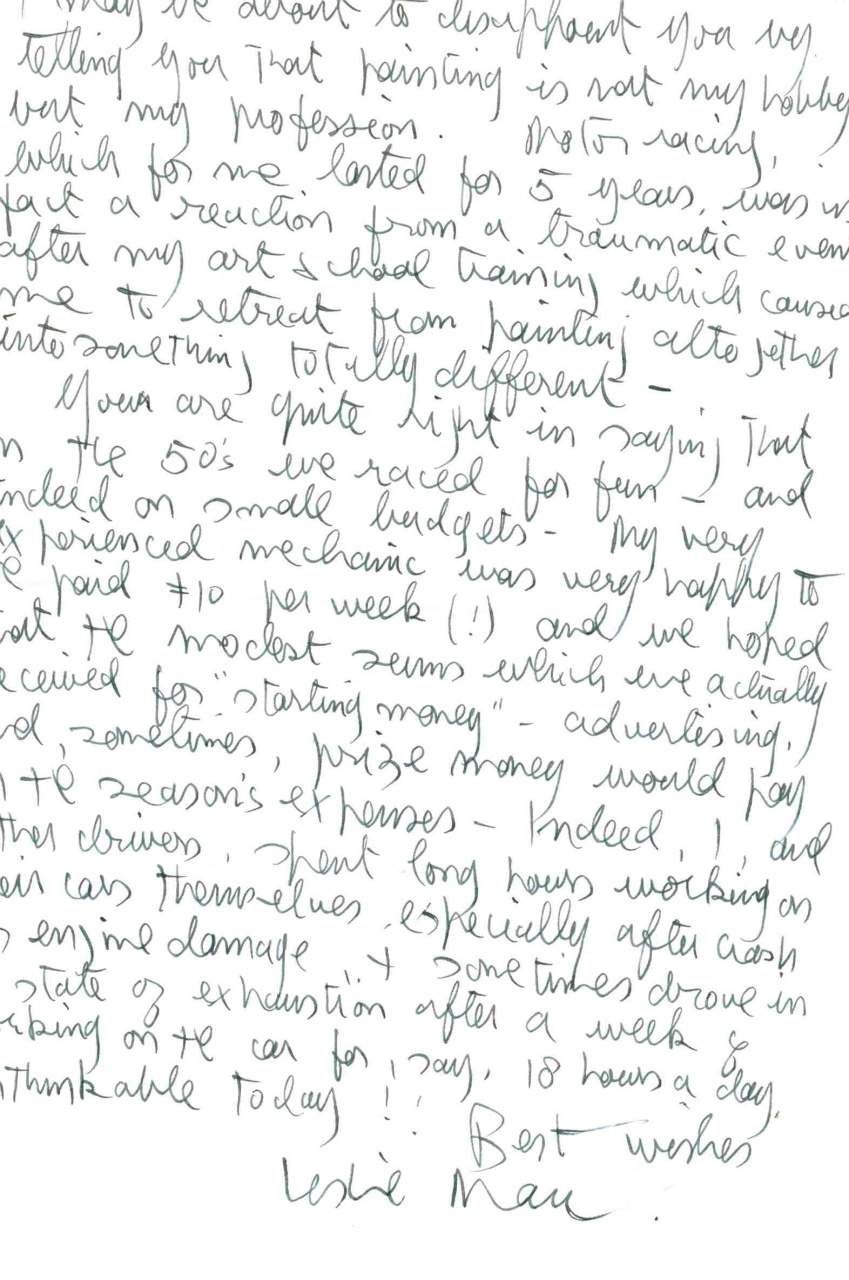 may be about to disappoint you by
telling you that painting is not my hobby
but my profession. Motor racing,
which for me lasted for 5 years, was in
fact a reaction from a traumatic even
after my art school training which cause
me to retreat from painting altogether
into something totally different –
Your are quite right in saying that
n the 50's we raced for fun – and
ndeed on small budgets – My very
xperienced mechanic was very happy to
e paid £10 per week (!) and we hoped
at the modest sums which we actually
eceived for "starting money" – advertising,
nd, sometimes, prize money would pay
the season's expenses – Indeed, I, and
ther drivers, spent long hours working on
eir cars themselves, especially after crash
engine damage, & sometimes drove in
state of exhaustion after a week of
rking on the car for, say, 18 hours a day.
nthinkable today !!
Best wishes
Leslie Marr.